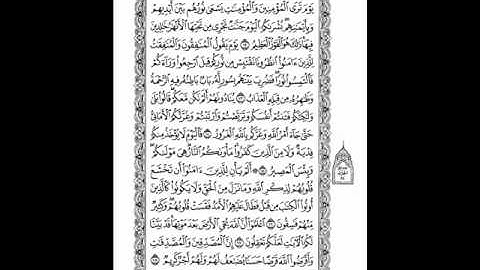 يَوْمَ تَرَى ٱلْمُؤْمِنِينَ وَٱلْمُؤْمِنَٰتِ يَسْعَىٰ نُورُهُم بَيْنَ أَيْدِيهِمْ
وَبِأَيْمَٰنِهِم بُشْرَىٰكُمُ ٱلْيَوْمَ جَنَّٰتٌ تَجْرِى مِن تَحْتِهَا ٱلْأَنْهَٰرُ خَٰلِدِينَ
فِيهَا ذَٰلِكَ هُوَ ٱلْفَوْزُ ٱلْعَظِيمُ ١٢ يَوْمَ يَقُولُ ٱلْمُنَٰفِقُونَ وَٱلْمُنَٰفِقَٰتُ
لِلَّذِينَ ءَامَنُوا۟ ٱنظُرُونَا نَقْتَبِسْ مِن نُّورِكُمْ قِيلَ ٱرْجِعُوا۟ وَرَآءَكُمْ
فَٱلْتَمِسُوا۟ نُورًا فَضُرِبَ بَيْنَهُم بِسُورٍ لَّهُۥ بَابٌۢ بَاطِنُهُۥ فِيهِ ٱلرَّحْمَةُ
وَظَٰهِرُهُۥ مِن قِبَلِهِ ٱلْعَذَابُ ١٣ يُنَادُونَهُمْ أَلَمْ نَكُن مَّعَكُمْ قَالُوا۟ بَلَىٰ
وَلَٰكِنَّكُمْ فَتَنتُمْ أَنفُسَكُمْ وَتَرَبَّصْتُمْ وَٱرْتَبْتُمْ وَغَرَّتْكُمُ ٱلْأَمَانِىُّ
حَتَّىٰ جَآءَ أَمْرُ ٱللَّهِ وَغَرَّكُم بِٱللَّهِ ٱلْغَرُورُ ١٤ فَٱلْيَوْمَ لَا يُؤْخَذُ مِنكُمْ
فِدْيَةٌ وَلَا مِنَ ٱلَّذِينَ كَفَرُوا۟ مَأْوَىٰكُمُ ٱلنَّارُ هِىَ مَوْلَىٰكُمْ
وَبِئْسَ ٱلْمَصِيرُ ١٥ أَلَمْ يَأْنِ لِلَّذِينَ ءَامَنُوٓا۟ أَن تَخْشَعَ
قُلُوبُهُمْ لِذِكْرِ ٱللَّهِ وَمَا نَزَلَ مِنَ ٱلْحَقِّ وَلَا يَكُونُوا۟ كَٱلَّذِينَ
أُوتُوا۟ ٱلْكِتَٰبَ مِن قَبْلُ فَطَالَ عَلَيْهِمُ ٱلْأَمَدُ فَقَسَتْ قُلُوبُهُمْ وَكَثِيرٌ
مِّنْهُمْ فَٰسِقُونَ ١٦ ٱعْلَمُوٓا۟ أَنَّ ٱللَّهَ يُحْىِ ٱلْأَرْضَ بَعْدَ مَوْتِهَا قَدْ بَيَّنَّا
لَكُمُ ٱلْءَايَٰتِ لَعَلَّكُمْ تَعْقِلُونَ ١٧ إِنَّ ٱلْمُصَّدِّقِينَ وَٱلْمُصَّدِّقَٰتِ
وَأَقْرَضُوا۟ ٱللَّهَ قَرْضًا حَسَنًا يُضَٰعَفُ لَهُمْ وَلَهُمْ أَجْرٌ كَرِيمٌ ١٨